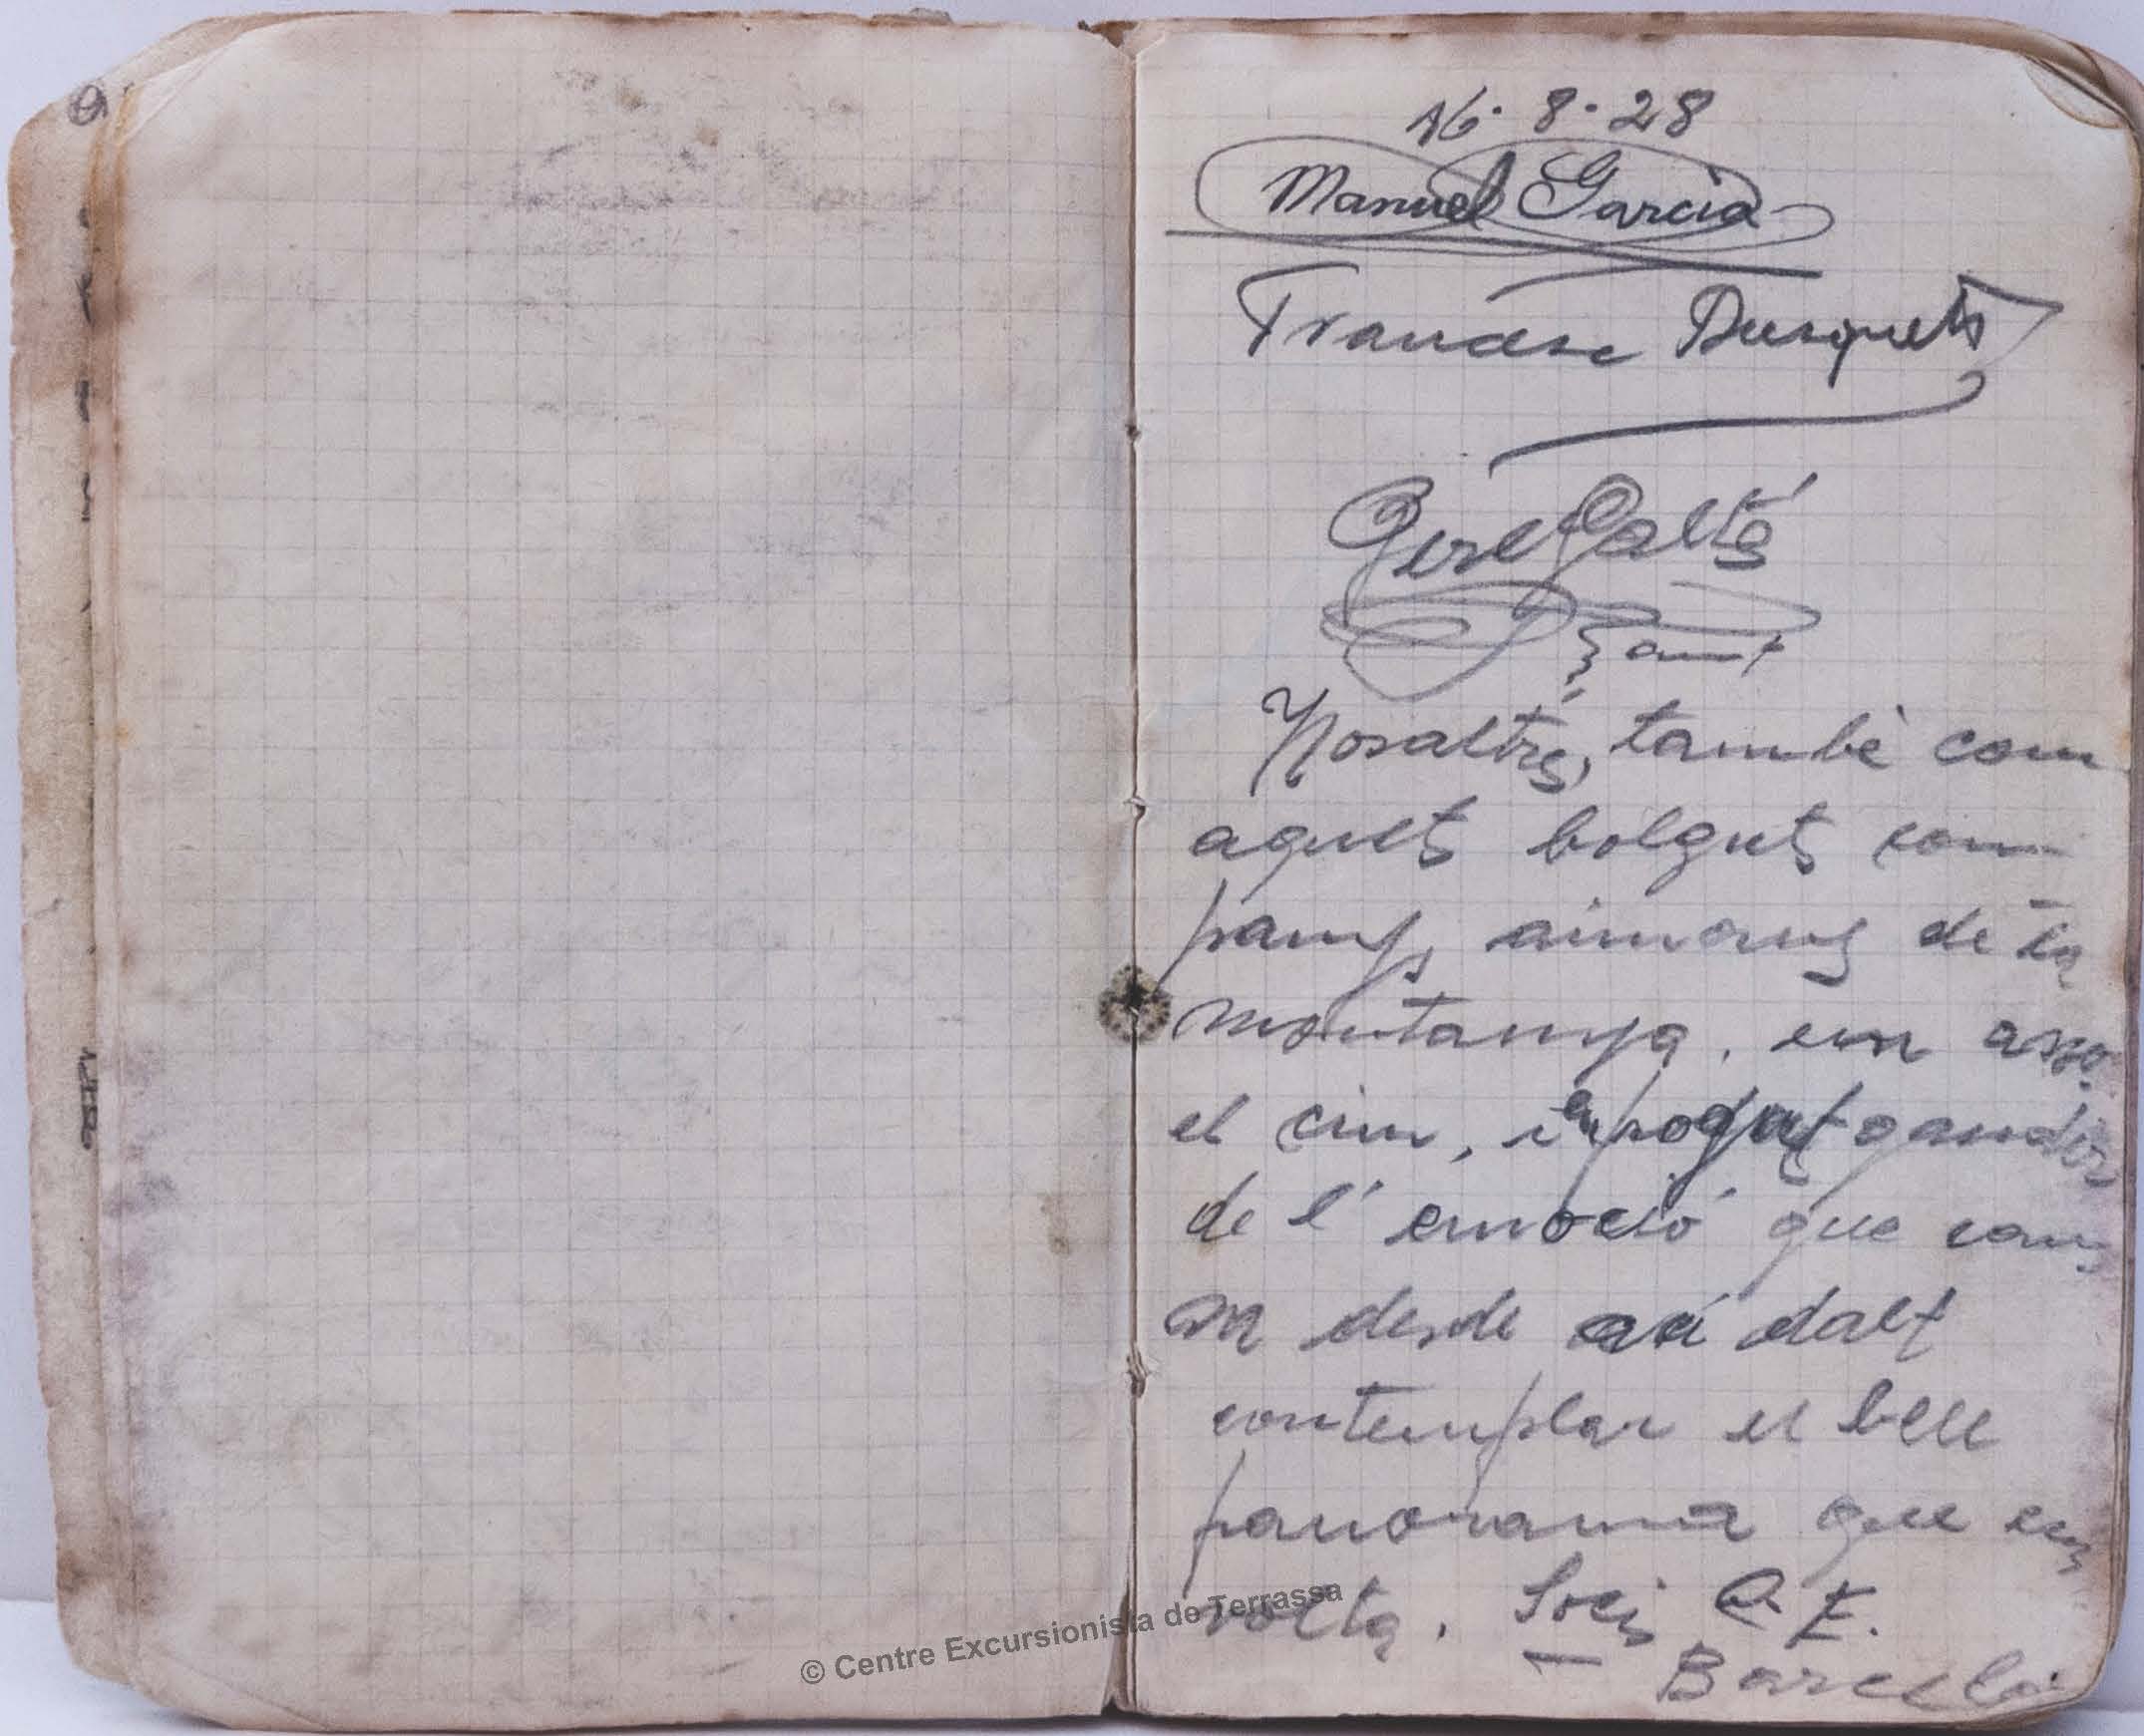 16·8·28
Manuel Garcia
Francesc Busquets
Pere Galtés
Nosaltres, també com
aquets bolguts com
panys, aimans de la
montanya, em asso.
el cim, i em pogut gaudir
de l'emoció que cau
sa desdeací dalt
contemplar el bell
panorama que ens
volta. Socis A. E.
Barcelo
© Centre Excursionista de Terrassa